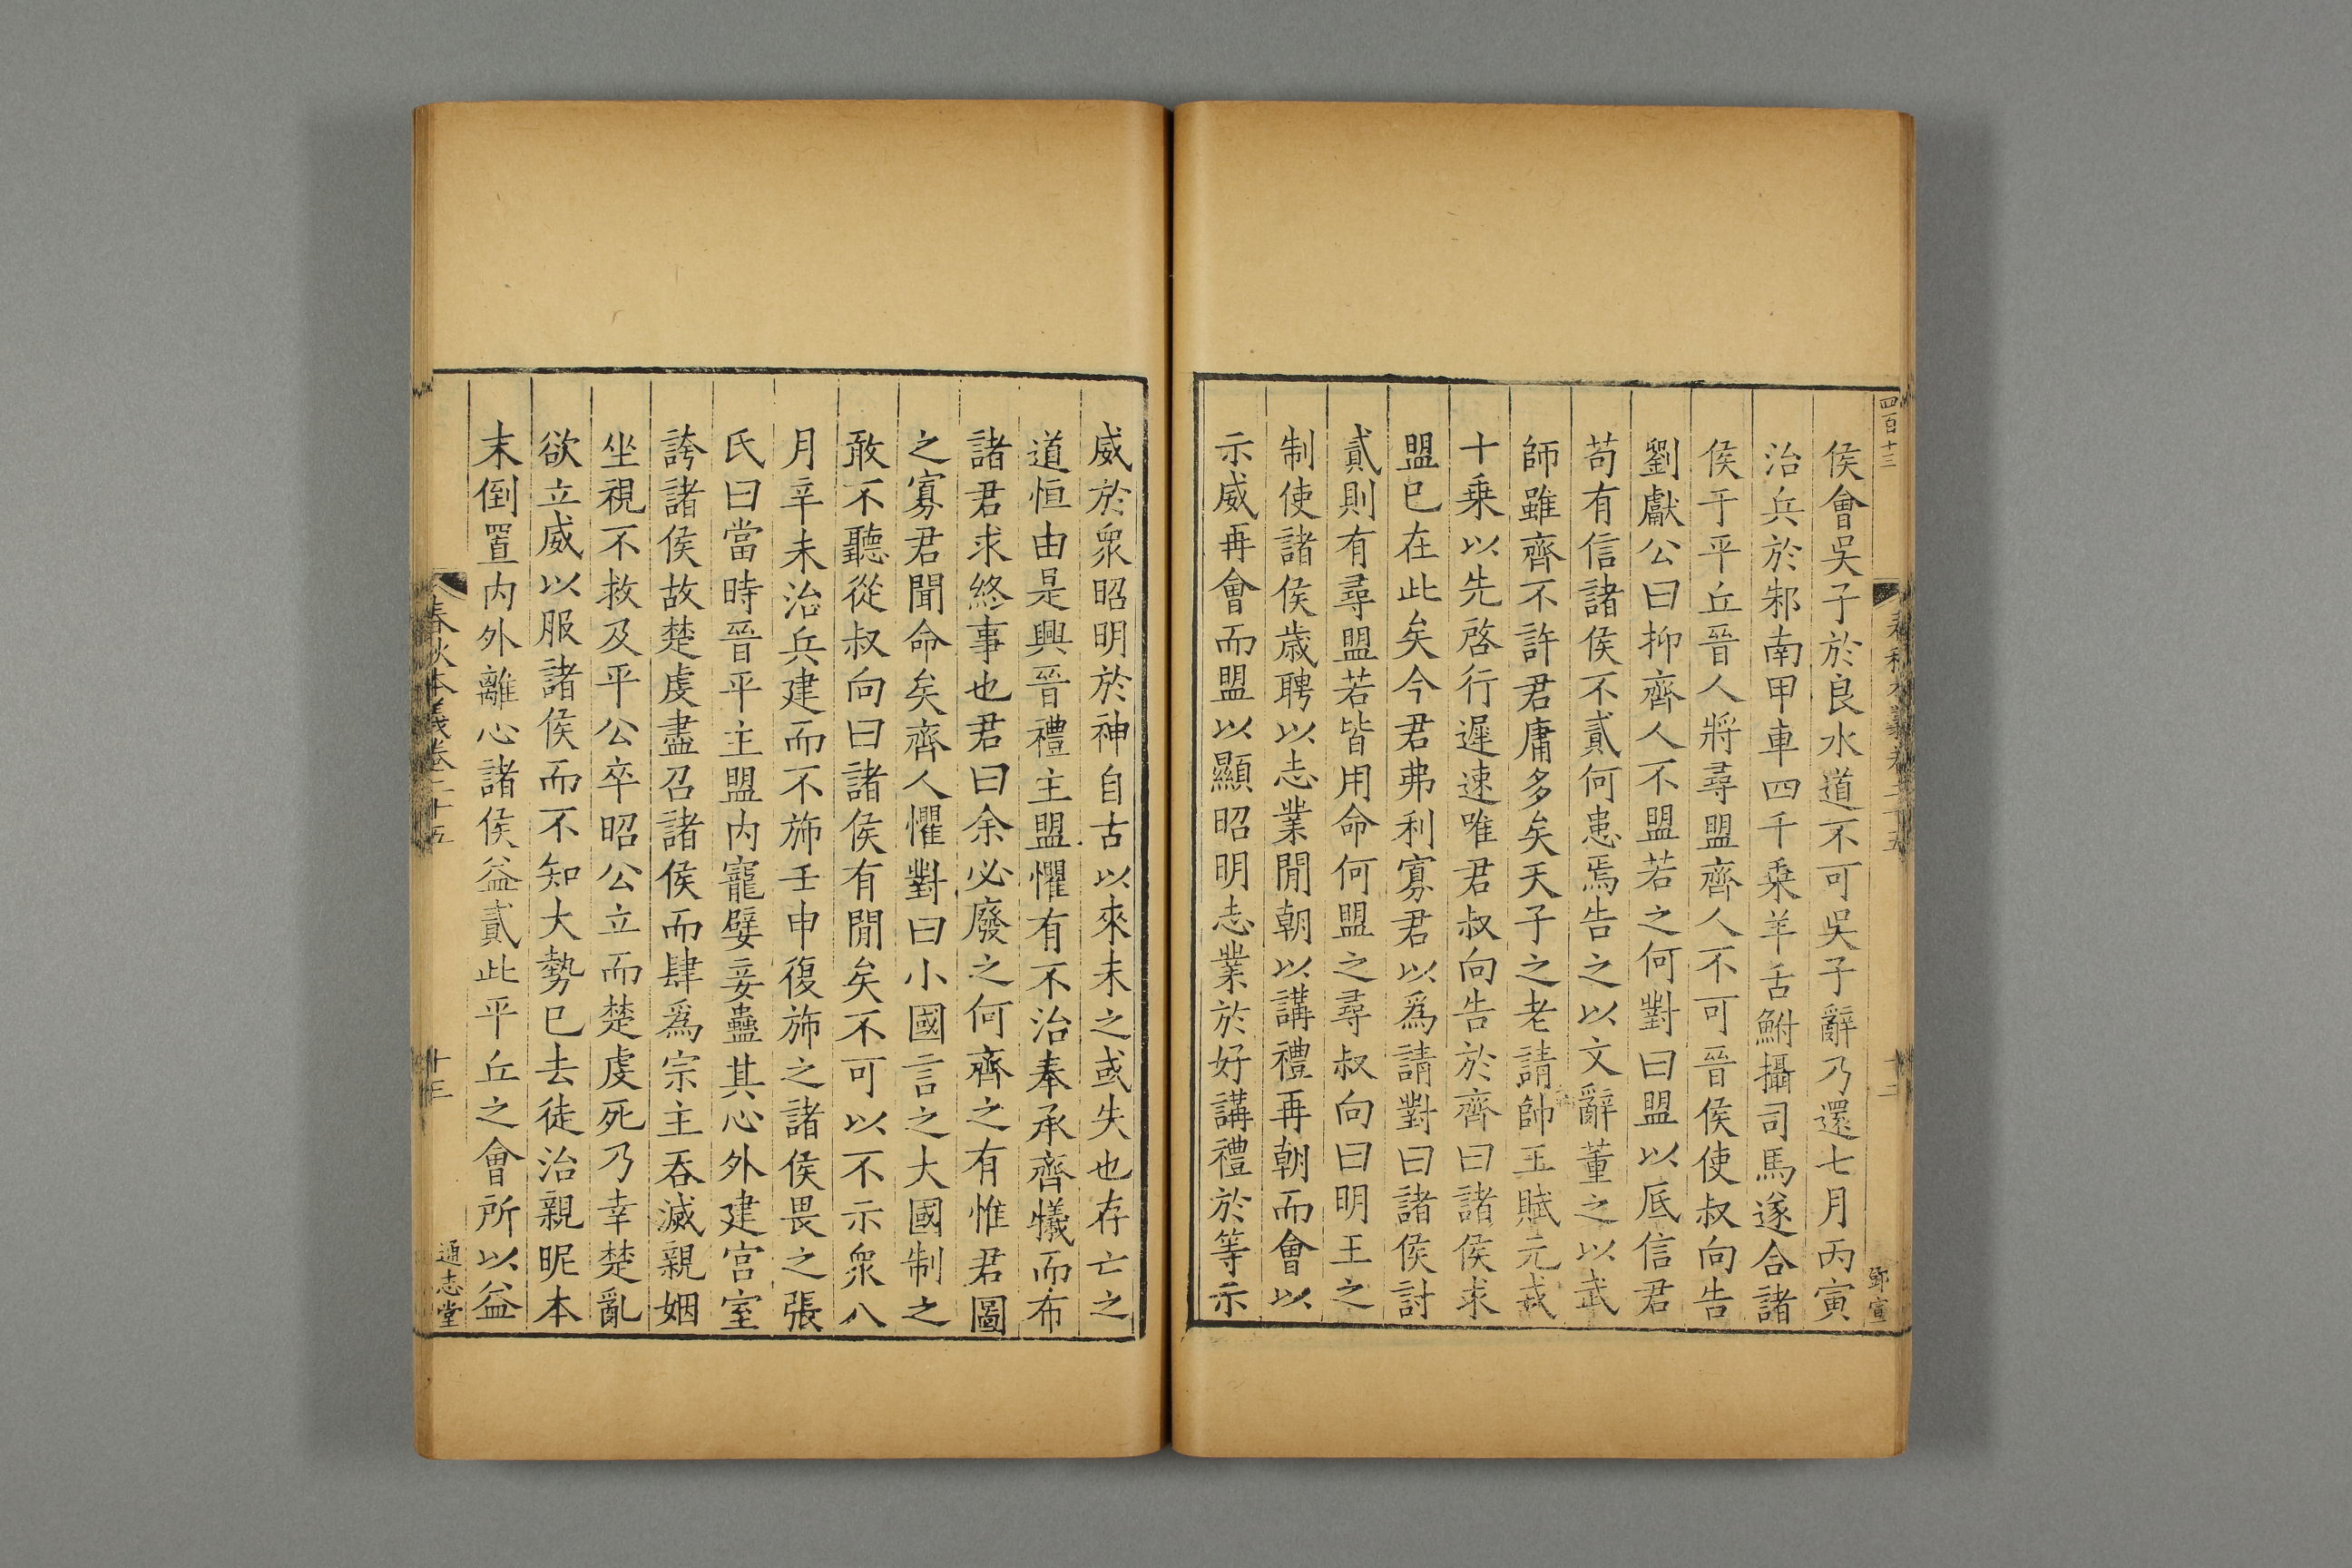 四百十三
春秋本義卷二十五
十二
鄧宣
侯會吳子於良水道不可吳子辭乃還七月丙寅
治兵於邾南甲車四千乗羊舌鮒攝司馬遂合諸
侯于平丘晉人將尋盟齊人不可晉侯使叔向告
劉獻公曰抑齊人不盟若之何對曰盟以厎信君
苟有信諸侯不貳何患焉告之以文辭董之以武
師雖齊不許君庸多矣天子之老請帥王賦元戎
十乗以先啓行遲速唯君叔向告於齊曰諸侯求
盟已在此矣今君弗利寡君以爲請對曰諸侯討
貳則有尋盟若皆用命何盟之尋叔向曰明王之
制使諸侯歲聘以志業閒朝以講禮再朝而會以
示威再會而盟以顯昭明志業於好講禮於等示
威於衆昭明於神自古以來未之或失也存亡之
道恒由是興晉禮主盟懼有不治奉承齊犧而布
諸君求終事也君曰余必廢之何齊之有惟君圖
之寡君聞命矣齊人懼對曰小國言之大國制之
敢不聽從叔向曰諸侯有閒矣不可以不示衆八
月辛未治兵建而不斾壬申復斾之諸侯畏之張
氏曰當時晉平主盟内寵嬖妾蠱其心外建宫室
誇諸侯故楚虔盡召諸侯而肆爲宗主吞滅親姻
坐視不救及平公卒昭公立而楚虔死乃幸楚亂
欲立威以服諸侯而不知大勢已去徒治親昵本
末倒置内外離心諸侯益貳此平丘之會所以益
春秋本義卷二十五
十三
通志堂